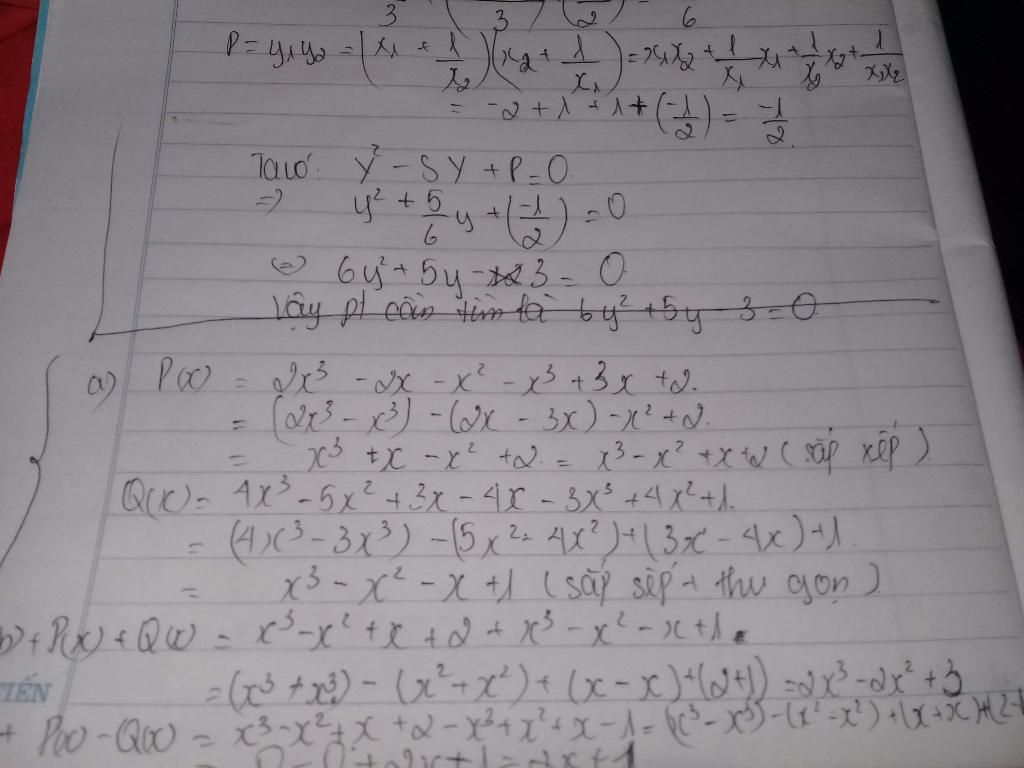 3 ( 3 ) ( 2 ) 6
P = y₁y₂ = (x₁ + 1/x₂)(x₂ + 1/x₁) = x₁x₂ + 1/x₁ x₁ + 1/x₂ x₂ + 1/x₁x₂
= -2 + 1 + 1 + (-1/2) = -1/2.
Ta có: Y² - SY + P = 0
=> y² + 5/6 y + (-1/2) = 0
(=) 6y² + 5y - 3 = 0
Vậy pt cần tìm là 6y² + 5y - 3 = 0
a) P(x) = 2x³ - 2x - x² - x³ + 3x + 2.
= (2x³ - x³) - (2x - 3x) - x² + 2.
= x³ + x - x² + 2 = x³ - x² + x + 2 (sắp xếp)
Q(x) = 4x³ - 5x² + 3x - 4x - 3x³ + 4x² + 1.
= (4x³ - 3x³) - (5x² - 4x²) + (3x - 4x) + 1.
= x³ - x² - x + 1 (sắp sếp + thu gọn)
b) + P(x) + Q(x) = x³ - x² + x + 2 + x³ - x² - x + 1.
= (x³ + x³) - (x² + x²) + (x - x) + (2+1) = 2x³ - 2x² + 3
TIẾN
+ P(x) - Q(x) = x³ - x² + x + 2 - x³ + x² + x - 1 = (x³ - x³) - (x² - x²) + (x + x) + (2 - 1
= 0 - 0 + 2x + 1 = 2x + 1